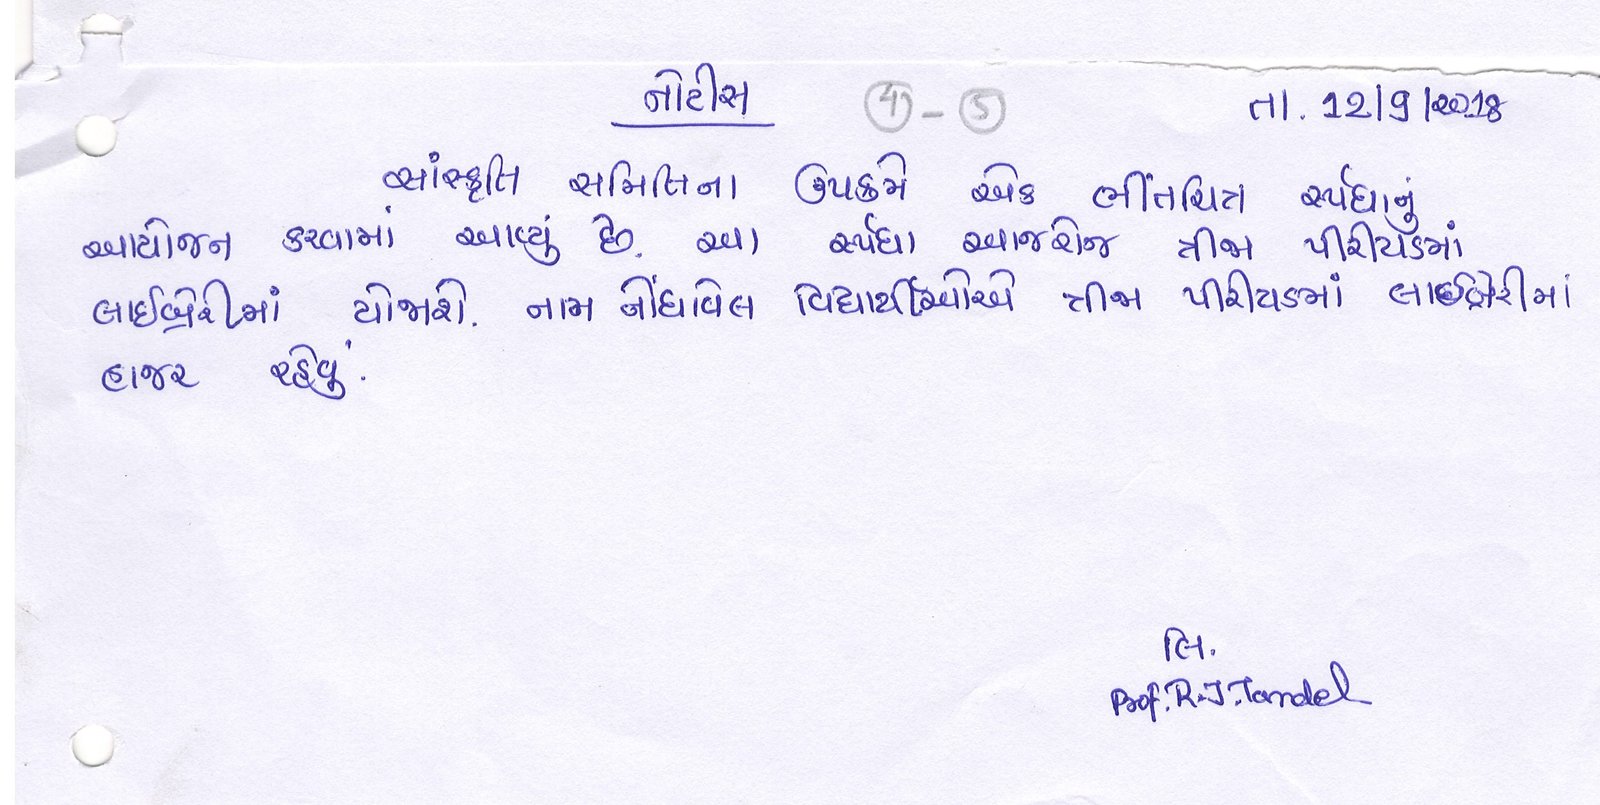 નોટીસ ④ - ⑤ તા. 12/9/2018
સાંસ્કૃતિ સમિતિના ઉપક્રમે એક ભીંતચિત્ર સ્પર્ધાનું
આયોજન કરવામાં આવ્યું છે. આ સ્પર્ધા આજરોજ ત્રીજા પીરીયડમાં
લાઈબ્રેરીમાં યોજાશે. નામ નોંધાવેલ વિદ્યાર્થીઓએ ત્રીજા પીરીયડમાં લાઈબ્રેરીમાં
હાજર રહેવું.
લિ.
Prof. R.J.Tandel